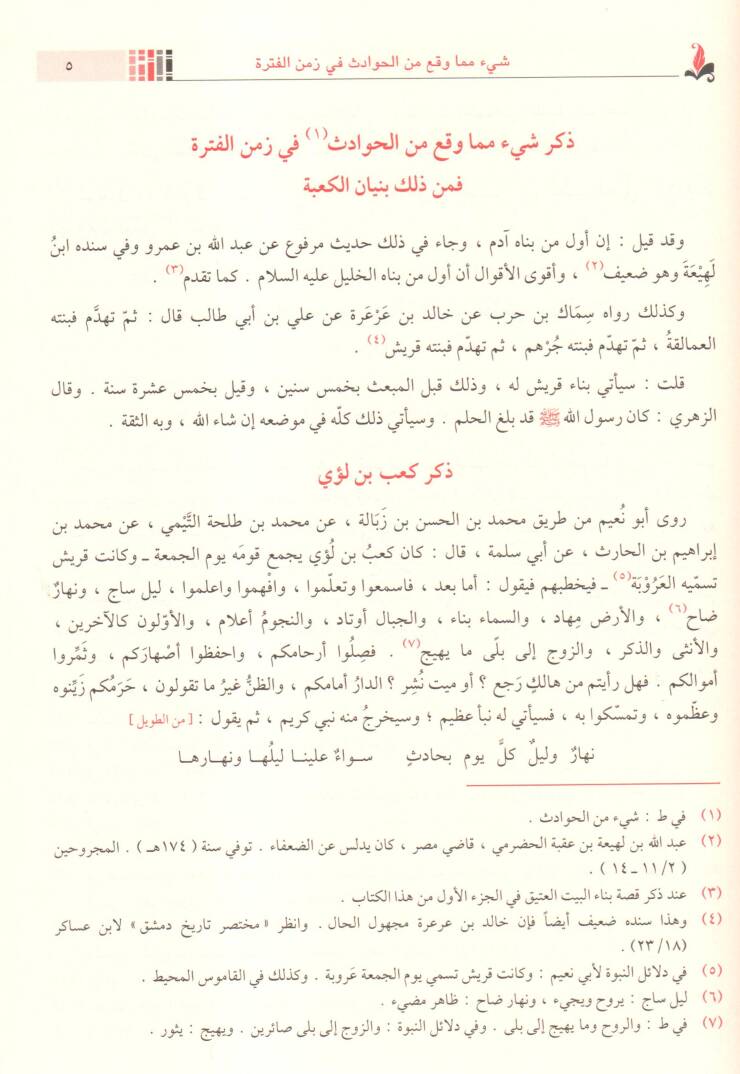 شيء مما وقع من الحوادث في زمن الفترة
٥
ذكر شيء مما وقع من الحوادث(١) في زمن الفترة
فمن ذلك بنيان الكعبة
وقد قيل : إن أول من بناه آدم ، وجاء في ذلك حديث مرفوع عن عبد الله بن عمرو وفي سنده ابنُ
لَهِيْعَةَ وهو ضعيف(٢) ، وأقوى الأقوال أن أول من بناه الخليل عليه السلام . كما تقدم(٣) .
وكذلك رواه سِمَاك بن حرب عن خالد بن عَرْعَرة عن علي بن أبي طالب قال : ثمّ تهدَّم فبنته
العمالقةُ ، ثمّ تهدّم فبنته جُرْهم ، ثم تهدّم فبنته قريش(٤) .
قلت : سيأتي بناء قريش له ، وذلك قبل المبعث بخمس سنين ، وقيل بخمس عشرة سنة . وقال
الزهري : كان رسول الله ﷺ قد بلغ الحلم . وسيأتي ذلك كلّه في موضعه إن شاء الله ، وبه الثقة .
ذكر كعب بن لؤي
روى أبو نُعيم من طريق محمد بن الحسن بن زَبَالة ، عن محمد بن طلحة التَّيْمي ، عن محمد بن
إبراهيم بن الحارث ، عن أبي سلمة ، قال : كان كعبُ بن لُؤي يجمع قومَه يوم الجمعة ـ وكانت قريش
تسمّيه العَرُوْبَة(٥) ـ فيخطبهم فيقول : أما بعد ، فاسمعوا وتعلّموا ، وافْهموا واعلموا ، ليل ساج ، ونهارٌ
ضاح(٦) ، والأرض مِهاد ، والسماء بناء ، والجبال أوتاد ، والنجومُ أعلام ، والأوّلون كالآخرين ،
والأنثى والذكر ، والزوج إلى بلّى ما يهيج(٧) . فصِلُوا أرحامكم ، واحفظوا أصْهارَكم ، وثَمِّروا
أموالكم . فهل رأيتم من هالكٍ رَجع ؟ أو ميت نُشِر ؟ الدارُ أمامكم ، والظنُّ غيرُ ما تقولون ، حَرَمُكم زَيِّنوه
وعظّموه ، وتمسّكوا به ، فسيأتي له نبأ عظيم ؛ وسيخرجُ منه نبي كريم ، ثم يقول : [ من الطويل ]
نهارٌ وليلٌ كلَّ يوم بحادثٍ سـواءٌ علينـا ليلُهـا ونهـارهـا
(١) في ط : شيء من الحوادث .
(٢) عبد الله بن لهيعة بن عقبة الحضرمي ، قاضي مصر ، كان يدلس عن الضعفاء . توفي سنة ( ١٧٤هـ ) . المجروحين
( ٢/ ١١ ـ ١٤ ) .
(٣) عند ذكر قصة بناء البيت العتيق في الجزء الأول من هذا الكتاب .
(٤) وهذا سنده ضعيف أيضاً فإن خالد بن عرعرة مجهول الحال . وانظر « مختصر تاريخ دمشق » لابن عساكر
(١٨/ ٢٣) .
(٥) في دلائل النبوة لأبي نعيم : وكانت قريش تسمي يوم الجمعة عَروبة . وكذلك في القاموس المحيط .
(٦) ليل ساج : يروح ويجيء ، ونهار ضاح : ظاهر مضيء .
(٧) في ط : والروح وما يهيج إلى بلى . وفي دلائل النبوة : والزوج إلى بلى صائرين . ويهيج : يثور .